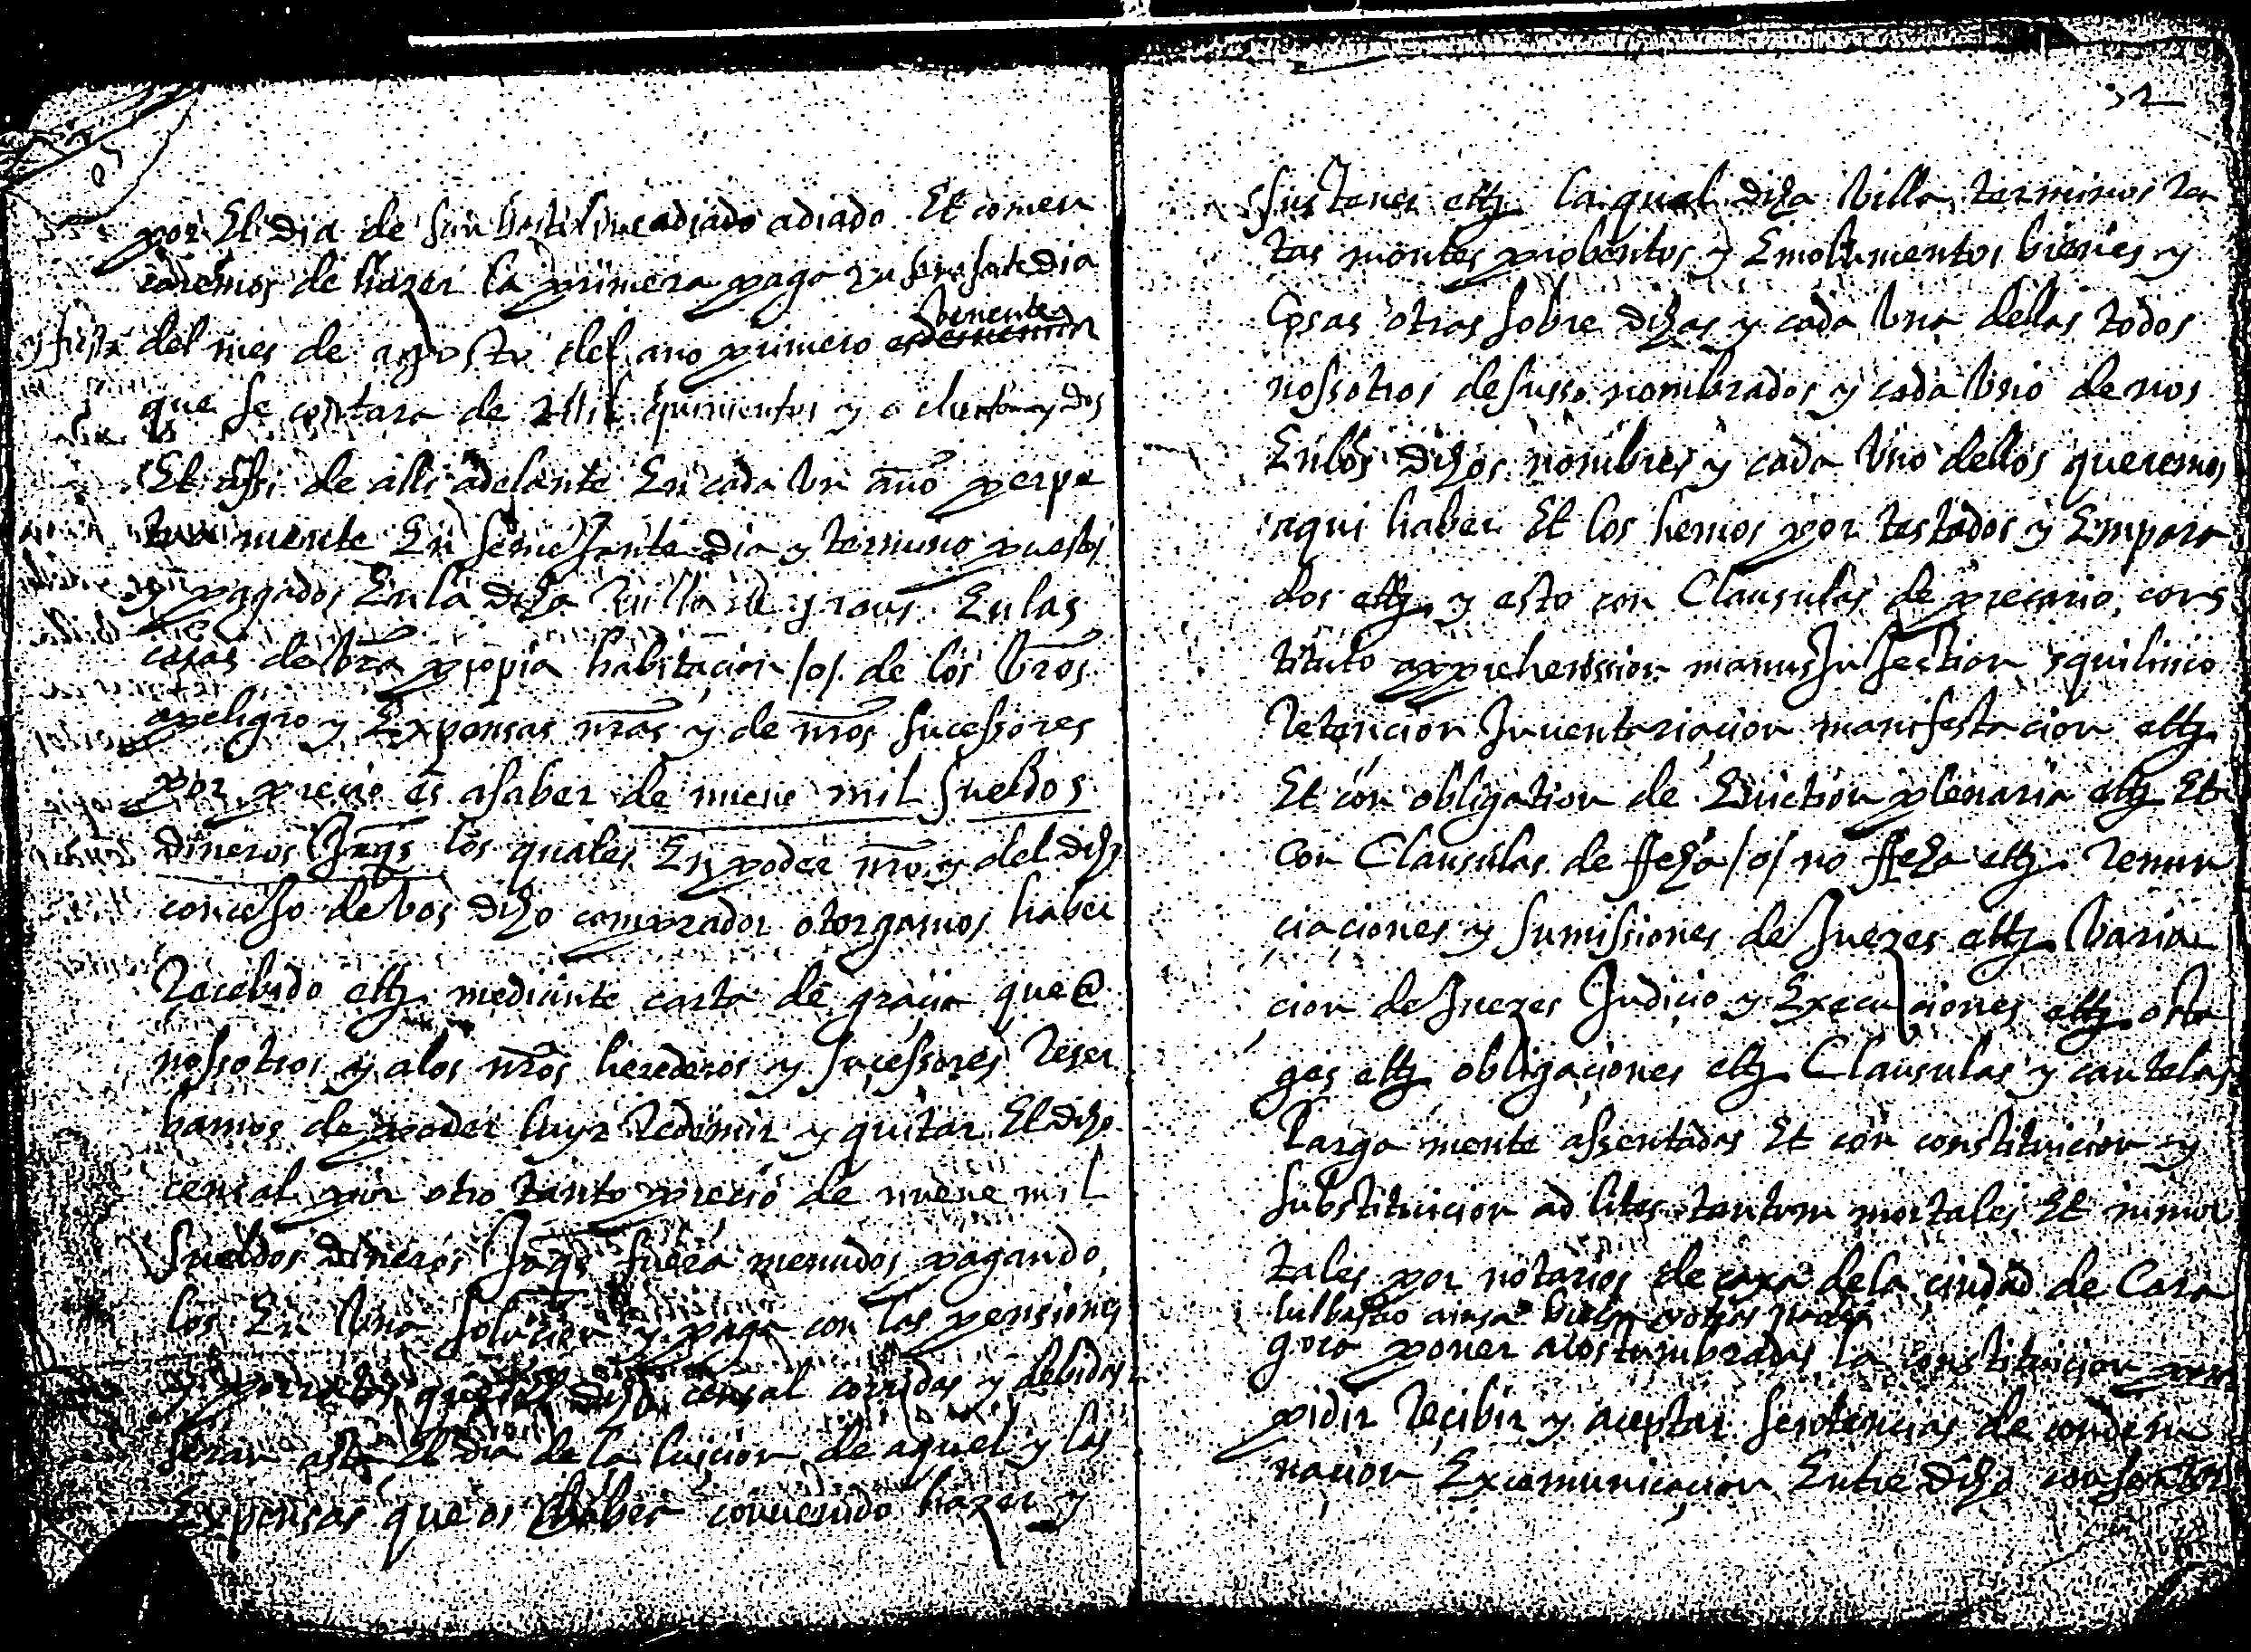 por El dia de adiado adiado Et comen
caremos de hazer la primera paga dia
venente
del mes de agosto del ano primero
que se contara de mil quinientos y ochenta y dos
Et assi de alli adelante En cada Un año perpe
tua mente En semejante dia y termino puestos
y pagados En la dicha Villa de graus En las
casas de vra propia habitacion /o/ de los Vros
a peligro y Expensas nras y de nros sucessores
por precio es asaber de nueve mil sueldos
dineros Jaqs los quales En poder nro y del dicho
concejo de vos dicho comprador otorgamos haber
Recebido ettz mediante carta de gracia que @
nossotros y a los nros herederos y sucessores Reser
bamos de poder luyr Redemir y quitar El dicho
censal por otro tanto precio de nueve mil
sueldos dineros Jaqs fuera menudos pagando
los En Una solucion y paga con las pensiones
y porratas que del dicho censal corridas y debidas
seran asta El dia de la luicion de aquel y las
Expensas que os haber convenido hazer y
32
sustener ettz la qual dicha Villa terminos Ren
tas montes probentos y Emolumentos bienes y
Cosas otras sobre dichas y cada Una dellas todos
nossotros desusso nombrados y cada Uno de nos
En los dichos nombres y cada Uno dellos queremos
aqui haber Et los hemos por testados y Empara
dos ettz y esto con Clausulas de precario cons
tituto apprehenssion manus Injection ynquilinio
Retencion Inventariacion manifestacion ettz
Et con obligation de Eviction plenaria ettz Et
con Clausulas de ffecha /o/ no ffecha ettz Renun
ciaciones y sumissiones de Juezes ettz Varia
cion de Juezes Judicio y Execuciones ettz osta
ges ettz obligaciones ettz Clausulas y cautelas
Larga mente assentadas Et con constitucion y
substitucion ad lites tantum mortales Et inmor
tales por notarios de caxa de la ciudad de Cara
goca poner acostumbradas la constitucion para
pidir Recibir y aceptar sentencias de condem
nacion Excomunicacion Entre dicho